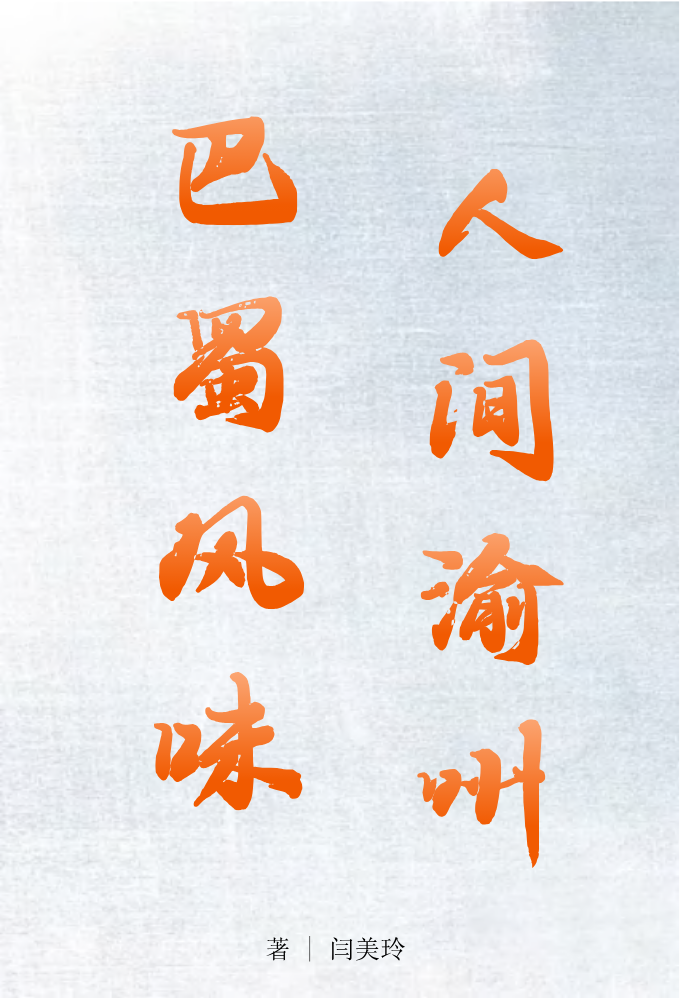 人间渝州
巴蜀风味
著｜闫美玲